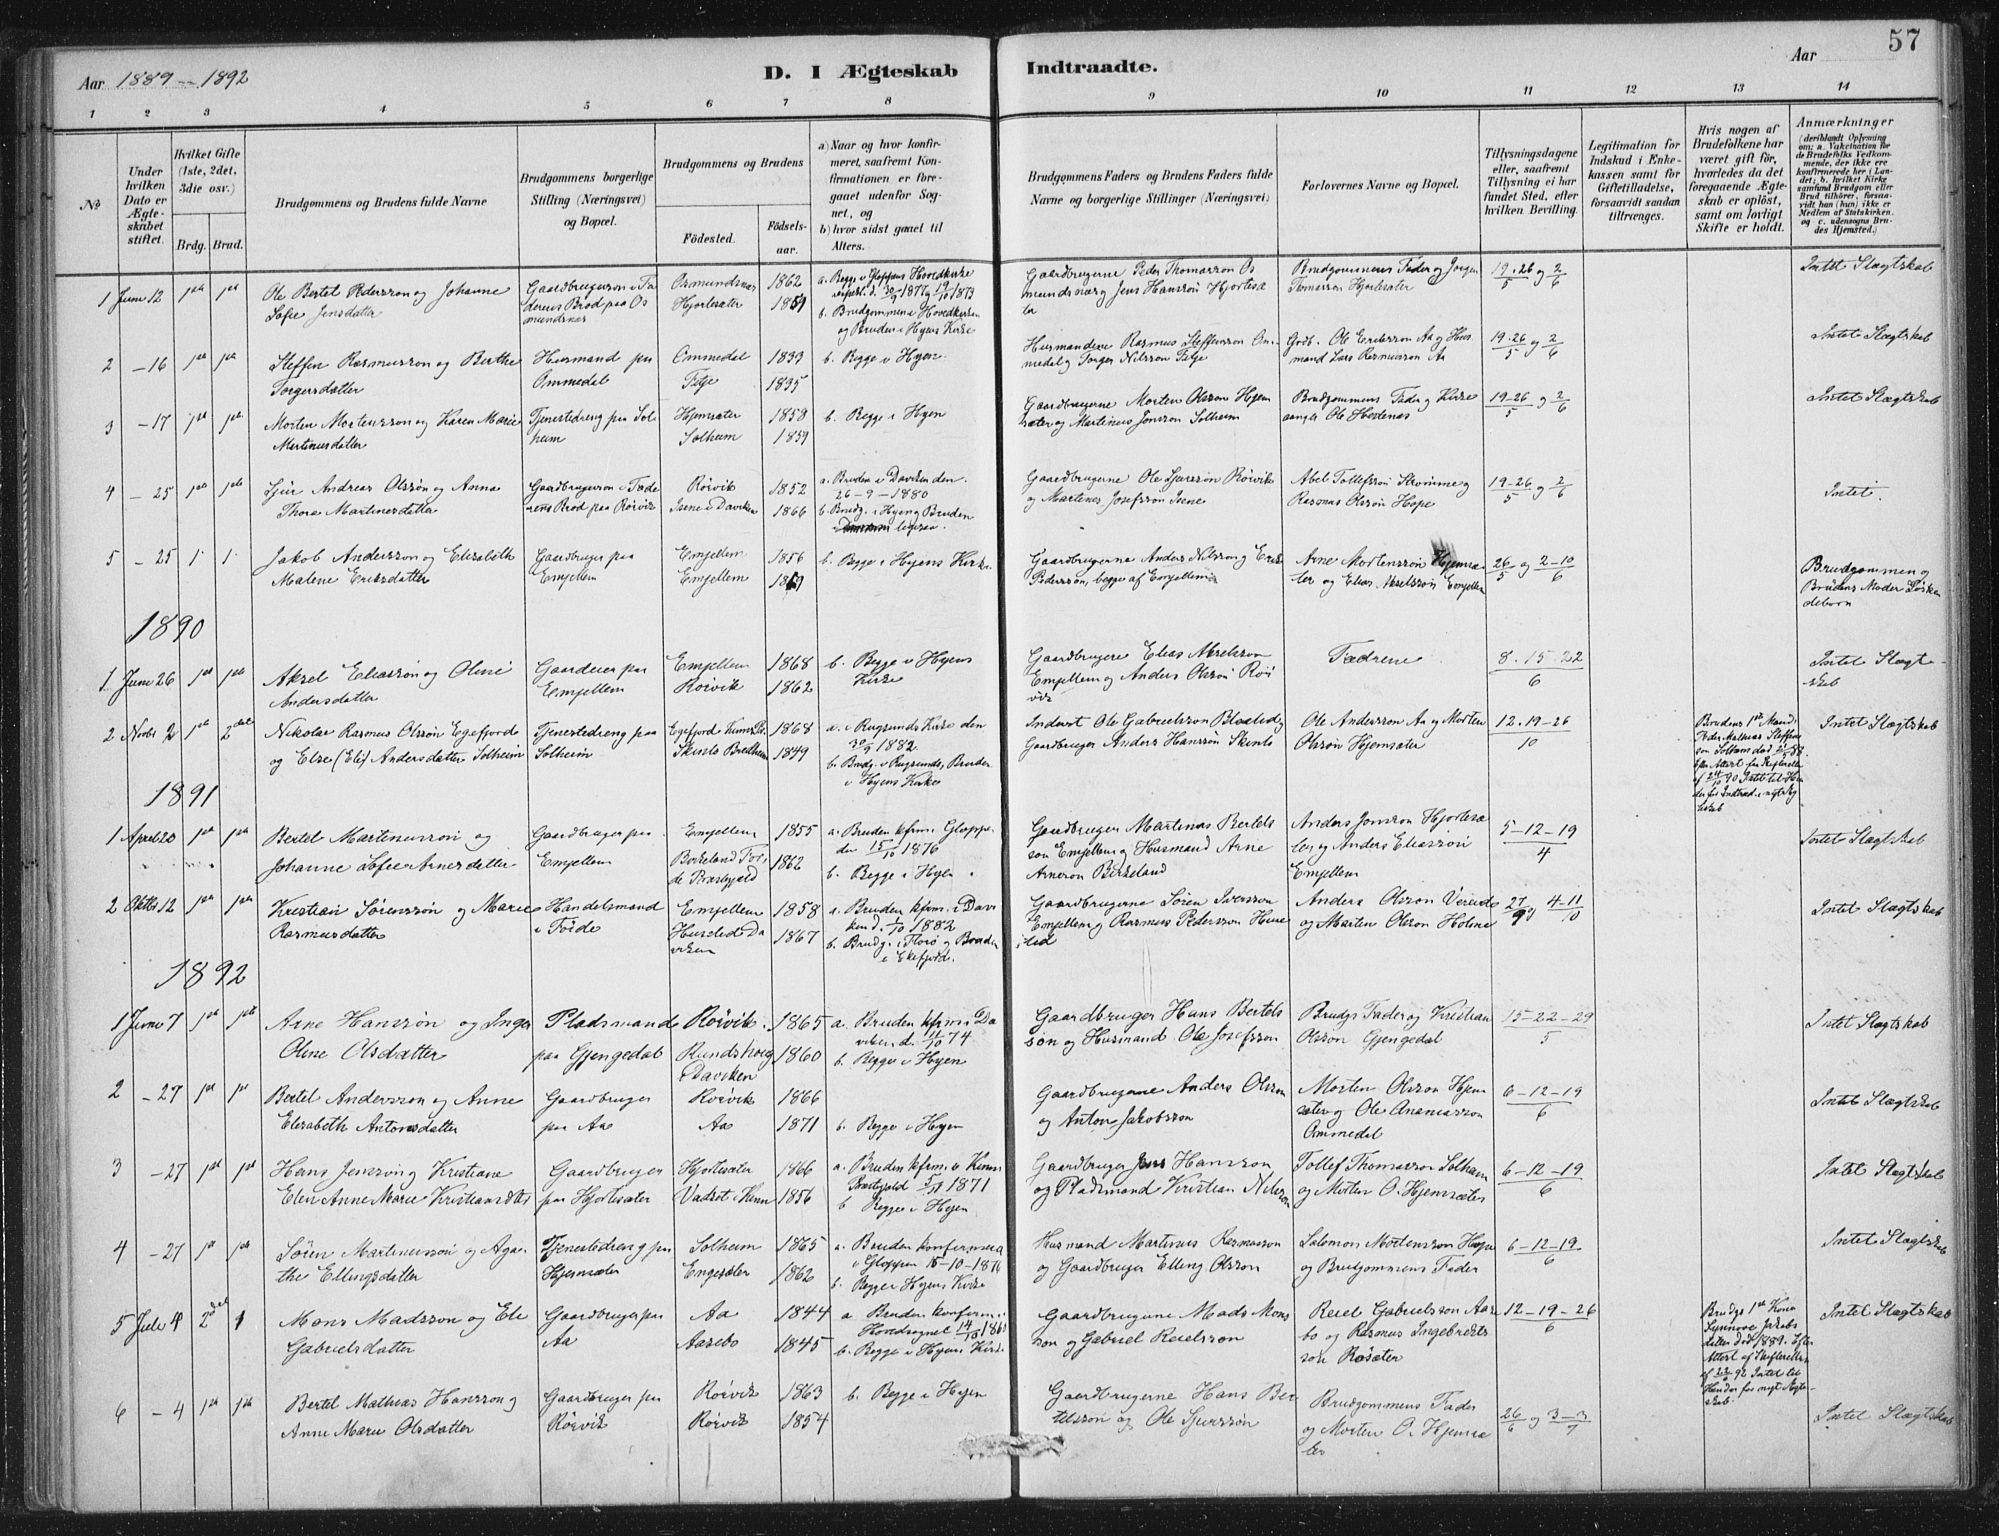 57
Aar 1889 - 1892
D. I Ægteskab Indtraadte.
Aar
1 2 3 4 5 6 7 8 9 10 11 12 13 14
№
Under hvilken Dato er Ægteskabet stiftet.
Hvilket Gifte (1ste, 2det, 3die osv.)
Brdg. Brud.
Brudgommens og Brudens fulde Navne
Brudgommens borgerlige Stilling (Næringsvei) og Bopæl.
Brudgommens og Brudens
Fødested. Fødselsaar.
a) Naar og hvor konfirmeret, saafremt Konfirmationen er foregaaet udenfor Sognet, og
b) hvor sidst gaaet til Alters.
Brudgommens Faders og Brudens Faders fulde Navne og borgerlige Stillinger (Næringsvei)
Forlovernes Navne og Bopæl.
Tillysningsdagene eller, saafremt Tillysning ei har fundet Sted, efter hvilken Bevilling.
Legitimation for Indskud i Enkekassen samt for Giftetilladelse, forsaavidt saadan tiltrænges.
Hvis nogen af Brudefolkene har været gift før, hvorledes da det foregaaende Ægteskab er opløst, samt om lovligt Skifte er holdt.
Anmærkninger (deriblandt Oplysning om: a. Vakcination for de Brudefolks Vedkommende, der ikke ere konfirmerede her i Landet; b. hvilket Kirkesamfund Brudgom eller Brud tilhører, forsaavidt han (hun) ikke er Medlem af Statskirken, og c. udensogns Brudes Hjemsted.)
1 Juni 12 1ste 1ste Ole Bertel Pedersson og Johanne Sofie Jensdatter
Gaardbrugerson i Faderens Brød paa Osmundsnes
Osmundsnes 1862
Hjortesæter 1859
a. Begge i Gloppens Hovedkirke
b. Brudgommen i Hovedkirken og Bruden i Hyens Kirke
Gaardbrugerne Peder Thomasson Osmundsnes og Jens Hansson Hjortesæter
Brudgommens Fader og Jørgen Tomasson Hjortesæter
19.26/5 og 2/6
Intet Slægtskab
2 - 16 1ste 1ste Steffen Rasmusson og Berthe Torgersdatter
Husmand paa Ommedal
Ommedal 1833
Fetje 1835
b. Begge i Hyen
Husmændene Rasmus Steffensson Ommedal og Torger Nilsson Fetje
Gdb. Ole Eriksson Aa og Husmand Lars Rasmusson Aa
19.26/5 og 2/6
Intet Slægtskab
3 - 17 1ste 1ste Morten Mortensson og Karen Marie Martinusdatter
Tjenestedreng paa Solheim
Hjemsæter 1858
Solheim 1859
b. Begge i Hyen
Gaardbrugerne Morten Olsson Hjemsæter og Martinus Jonsson Solheim
Brudgommens Fader og Kirkesanger Ole Hestenes
19-26/5 og 2/6
Intet Slægtskab
4 - 25 1ste 1ste Sjur Andreas Olsson og Anna Thora Martinesdatter
Gaardbrugerson i Faderens Brød paa Rörvik
Rörvik 1852
Isene i Daviken 1866
a. Bruden i Daviken den 26-9-1880
b. Brudg. i Hyen og Bruden ligesaa
Gaardbrugerne Ole Sjursson Rörvik og Martines Josefsson Isene
Abel Tollefsson Strømme og Rasmus Olsson Hope
19-26/5 og 2/6
Intet.
5 - 25 1. 1. Jakob Andersson og Elisabeth Malene Eriksdatter
Gaardbruger paa Emjellem
Emjellem 1856
Emjellem 1869
b. Begge i Hyens Kirke
Gaardbrugerne Anders Nilsson og Erik Pedersson, begge af Emjellem
Arne Mortensson Hjemsæter og Elias Akselsson Emjellem
26/5 og 2-10/6
Brudgommen og Brudens Moder Søskendebørn
1890
1 Juni 26 1ste 1ste Aksel Eliasson og Oline Andersdatter
Gaardeier paa Emjellem
Emjellem 1868
Rörvik 1862
b. Begge i Hyens Kirke
Gaardbrugere Elias Akselsson Emjellem og Anders Olsson Rörvik
Fædrene
8.15.22/6
Intet Slægtskab
2 Novbr 2 1ste 2det Nikolai Rasmus Olsson Egefjord og Else (Eli) Andersdatter Solheim
Tjenestedreng paa Solheim
Egefjord 1868
Bredheim 1849
a. i Rugsunds Kirke den 30/9 1882
b. Brudg. i Rugsund, Bruden i Hyens Kirke
Inderst Ole Gabrielsson
Gaardbruger Anders Hansson
Ole Andersson Aa og Morten Olsson Hjemsæter
12.19-26/10
Brudens 1ste Mand, Peder Mathias Steffensson Solheim død
Intet Slægtskab
1891
1 April 20 1ste 1ste Bertel Martinusson og Johanne Sofie Arnesdatter
Gaardbruger paa Emjellem
Emjellem 1855
Birkeland Førde Præstegjeld 1862
a. Bruden kfrm. i Gloppen den 15/10 1876
b. Begge i Hyen
Gaardbruger Martinus Bertelsson Emjellem og Husmand Arne Arneson Birkeland
Anders Jonsson Hjortesæter og Anders Eliasson Emjellem
5-12-19/4
Intet Slægtskab
2 Oktbr 12 1ste 1ste Kristian Sørensson og Marie Rasmusdatter
Handelsmand i Førde
Emjellem 1858
Husetad Daviken 1867
a. Bruden kfrm. i Daviken d. 1/10 1882
b. Brudg. i Florø og Bruden i Eikefjord.
Gaardbrugerne Søren Iversson Emjellem og Rasmus Pedersson
Anders Olsson Vereide og Morten Olsson Holme
27/9 og 4-11/10
Intet Slægtskab
1892
1 Juni 7 1ste 1ste Arne Hansson og Inger Oline Olsdatter
Pladsmand paa Gjengedal
Rörvik. 1865
Daviken 1860
a. Bruden kfrm. i Daviken d. 11/10 74
b. Begge i Hyen
Gaardbruger Hans Bertelsson og Husmand Ole Josefsson
Brudgs Fader og Kristian Olsson Gjengedal
15-22-29/5
Intet Slægtskab
2 - 27 1ste 1ste Bertel Andersson og Anne Elisabeth Antonsdatter
Gaardbruger paa Aa
Rörvik 1866
Aa 1871
b. Begge i Hyen
Gaardbrugerne Anders Olsson og Anton Jakobsson
Morten Olsson Hjemsæter og Ole Ananiasson Ommedal
6-12-19/6
Intet Slægtskab
3 - 27 1ste 1ste Hans Jensson og Kristiane Elen Anne Marie Kristiansdtr
Gaardbruger paa Hjortesæter
Hjortesæter 1866
Vadset i Kinn 1856
a. Bruden kfrm. i Kinn Præstegjeld 5/11 1871
b. Begge i Hyen
Gaardbruger Jens Hansson og Pladsmand Kristian Nilsson
Tollef Thomasson Solheim og Morten O. Hjemsæter
6-12-19/6
Intet Slægtskab
4 - 27 1ste 1ste Søren Martinusson og Agathe Ellingsdatter
Tjenestedreng paa Hjemsæter
Solheim 1865
Engesæter 1862
a. Bruden konfirmera i Gloppen 15-10-1876
b. Begge i Hyens Kirke
Husmand Martinus Rasmusson og Gaardbruger Elling Olsson
Salomon Mortensson Hope og Brudgommens Fader
6-12-19/6
Intet Slægtskab
5 Juli 4 2det 1 Mons Madsson og Eli Gabrielsdatter
Gaardbruger paa Aa
Aa 1844
Aasebø 1845
a. Bruden konfirm. i Hovedsognet
b. Begge i Hyens Kirke
Gaardbrugerne Mads Monsson og Gabriel Reielsson
Reiel Gabrielsson Aasebø og Rasmus Ingebretsson Rosæter
12-19-26/6
Brudgs 1ste Kone Synnøve Jakobsdatter død 1889.
Intet Slægtskab
6 - 4 1ste 1ste Bertel Mathias Hansson og Anne Marie Olsdatter
Gaardbruger paa Rörvik
Rörvik 1863
Rörvik 1854
b. Begge i Hyen
Gaardbrugerne Hans Bertelsson og Ole Sjursson
Brudgommens Fader og Morten O. Hjemsæter
26/6 og 3-3/7
Intet Slægtskab